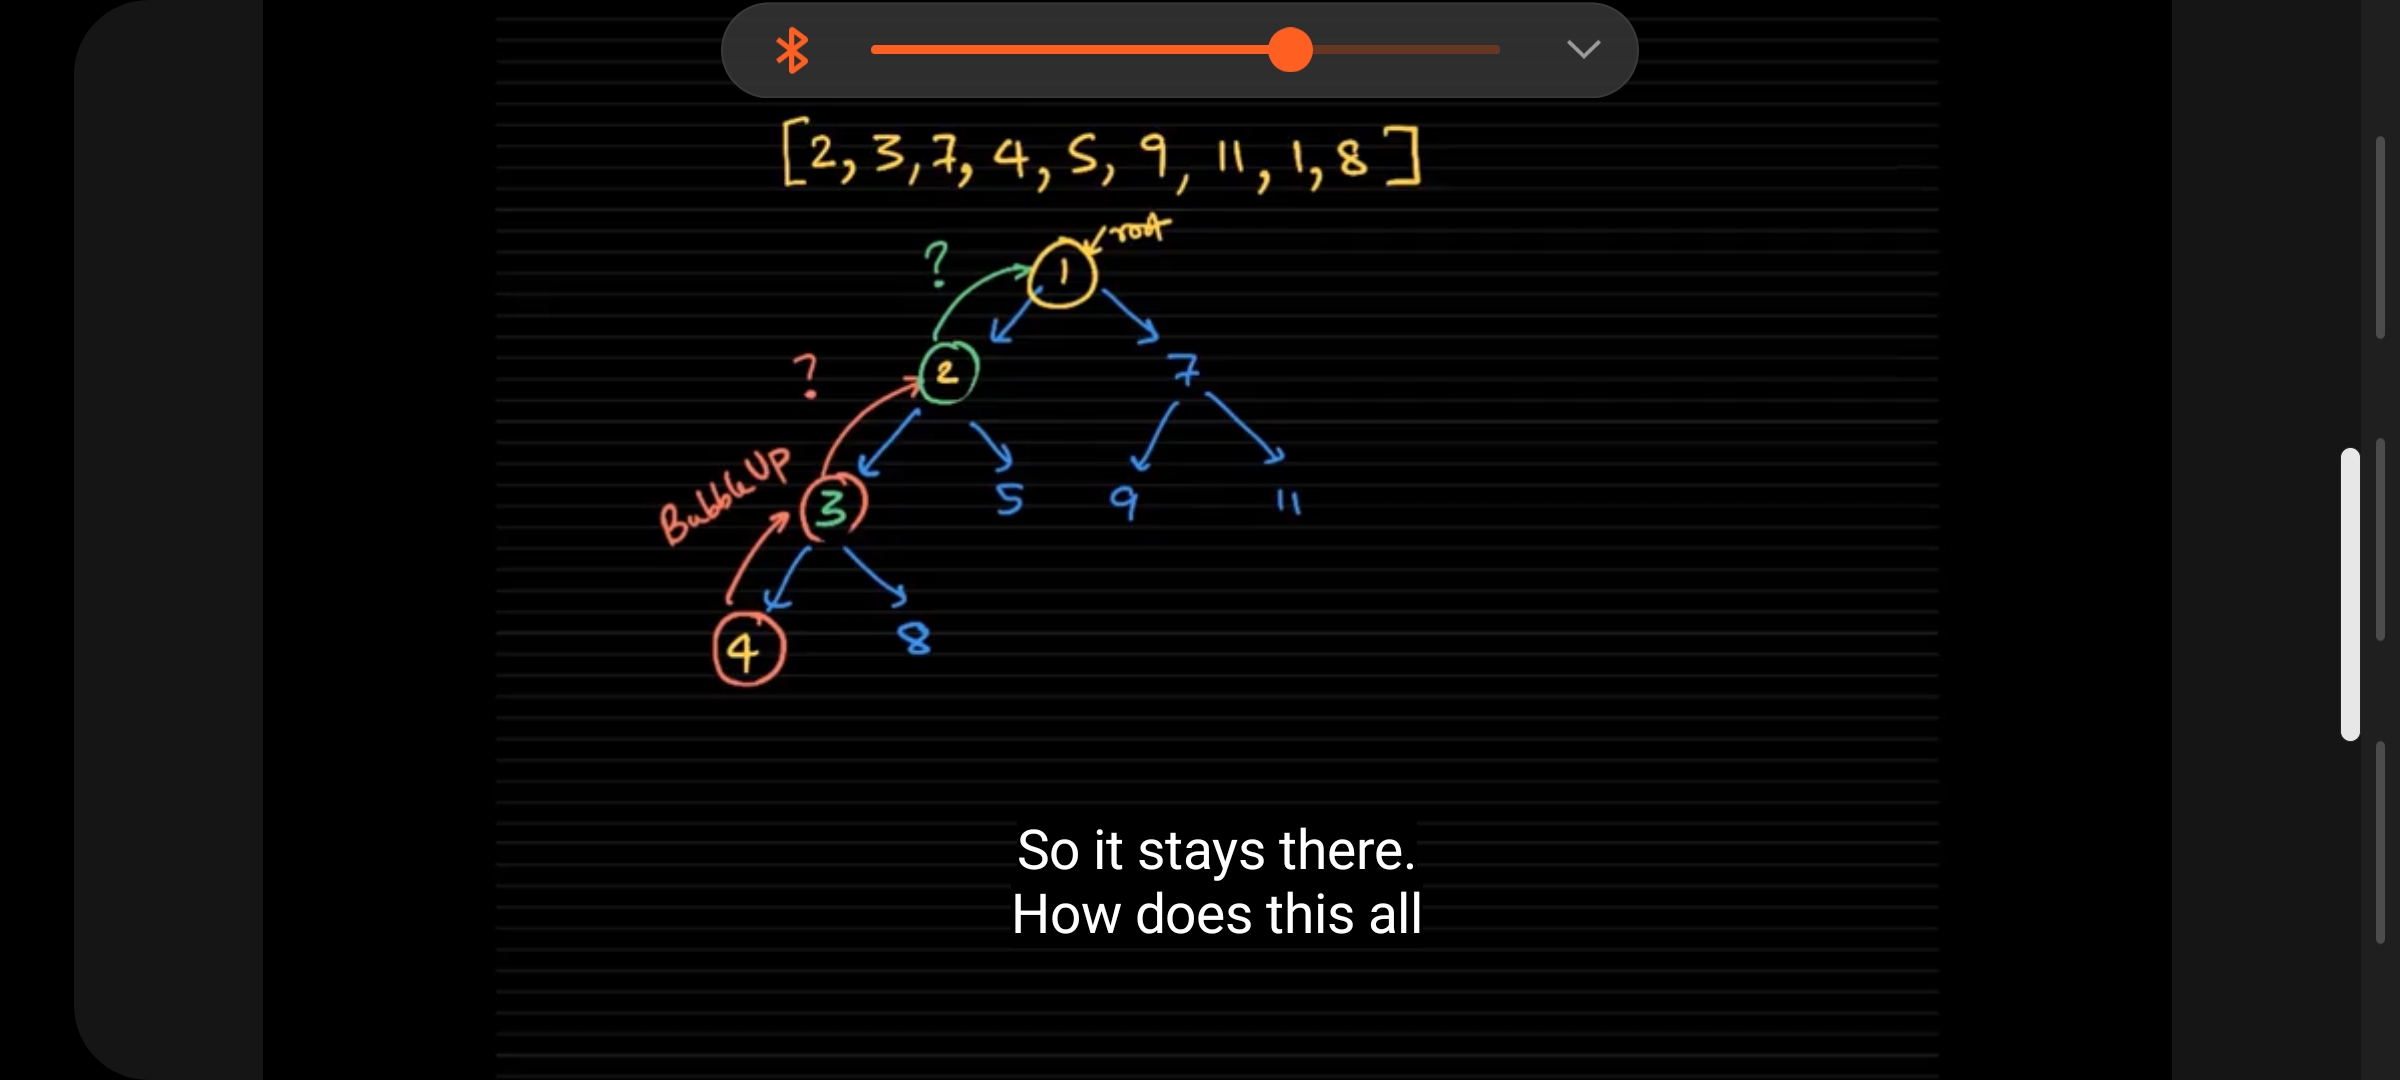 [2, 3, 7, 4, 5, 9, 11, 1, 8]
root
? 1
? 2 7
BubbleUp 3 5 9 11
4 8
So it stays there.
How does this all